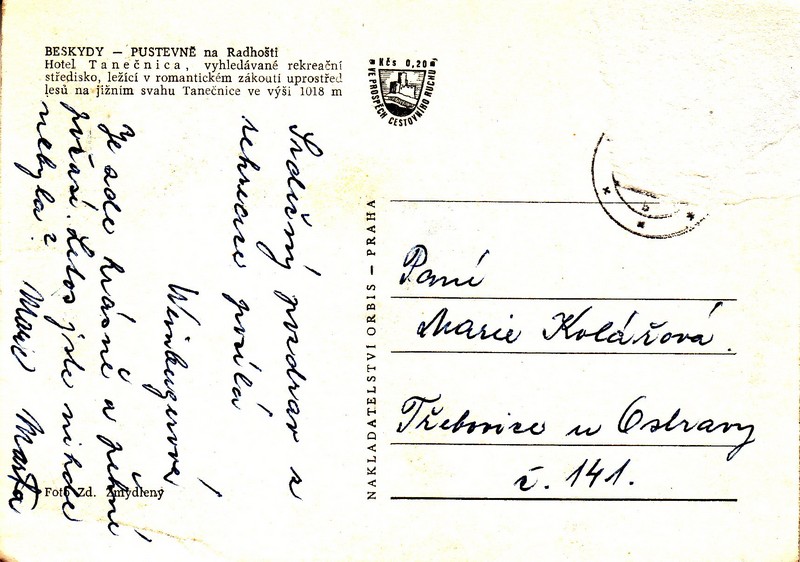 BESKYDY — PUSTEVNĚ na Radhošti
Hotel Tanečnica, vyhledávané rekreační
středisko, ležící v romantickém zákoutí uprostřed
lesů na jižním svahu Tanečnice ve výši 1018 m
Kčs 0,20
VE PROSPĚCH CESTOVNÍHO RUCHU
Srdečný pozdrav z
rekreace posílá
Je zde krásně a pěkné
počasí. Letos jste nikde
nebyla? Marie Marta
Foto Zd. Zmydlený
NAKLADATELSTVÍ ORBIS — PRAHA
Paní
Marie Kolářová.
Třebovice u Ostravy
č. 141.